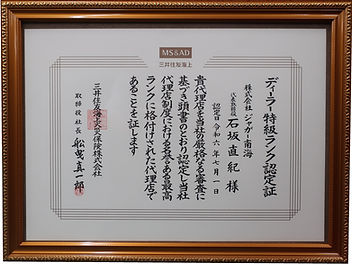 MS&AD
三井住友海上
ディーラー特級ランク認定証
株式会社 ジャガー南海
代表取締役 石坂直紀 様
認定日 令和六年七月一日
貴代理店を当社の厳格なる審査に
基づき頭書のとおり認定し当社
代理店制度における名誉ある最高
ランクに格付けされた代理店で
あることを証します
三井住友海上火災保険株式会社
取締役社長 舩曵真一郎